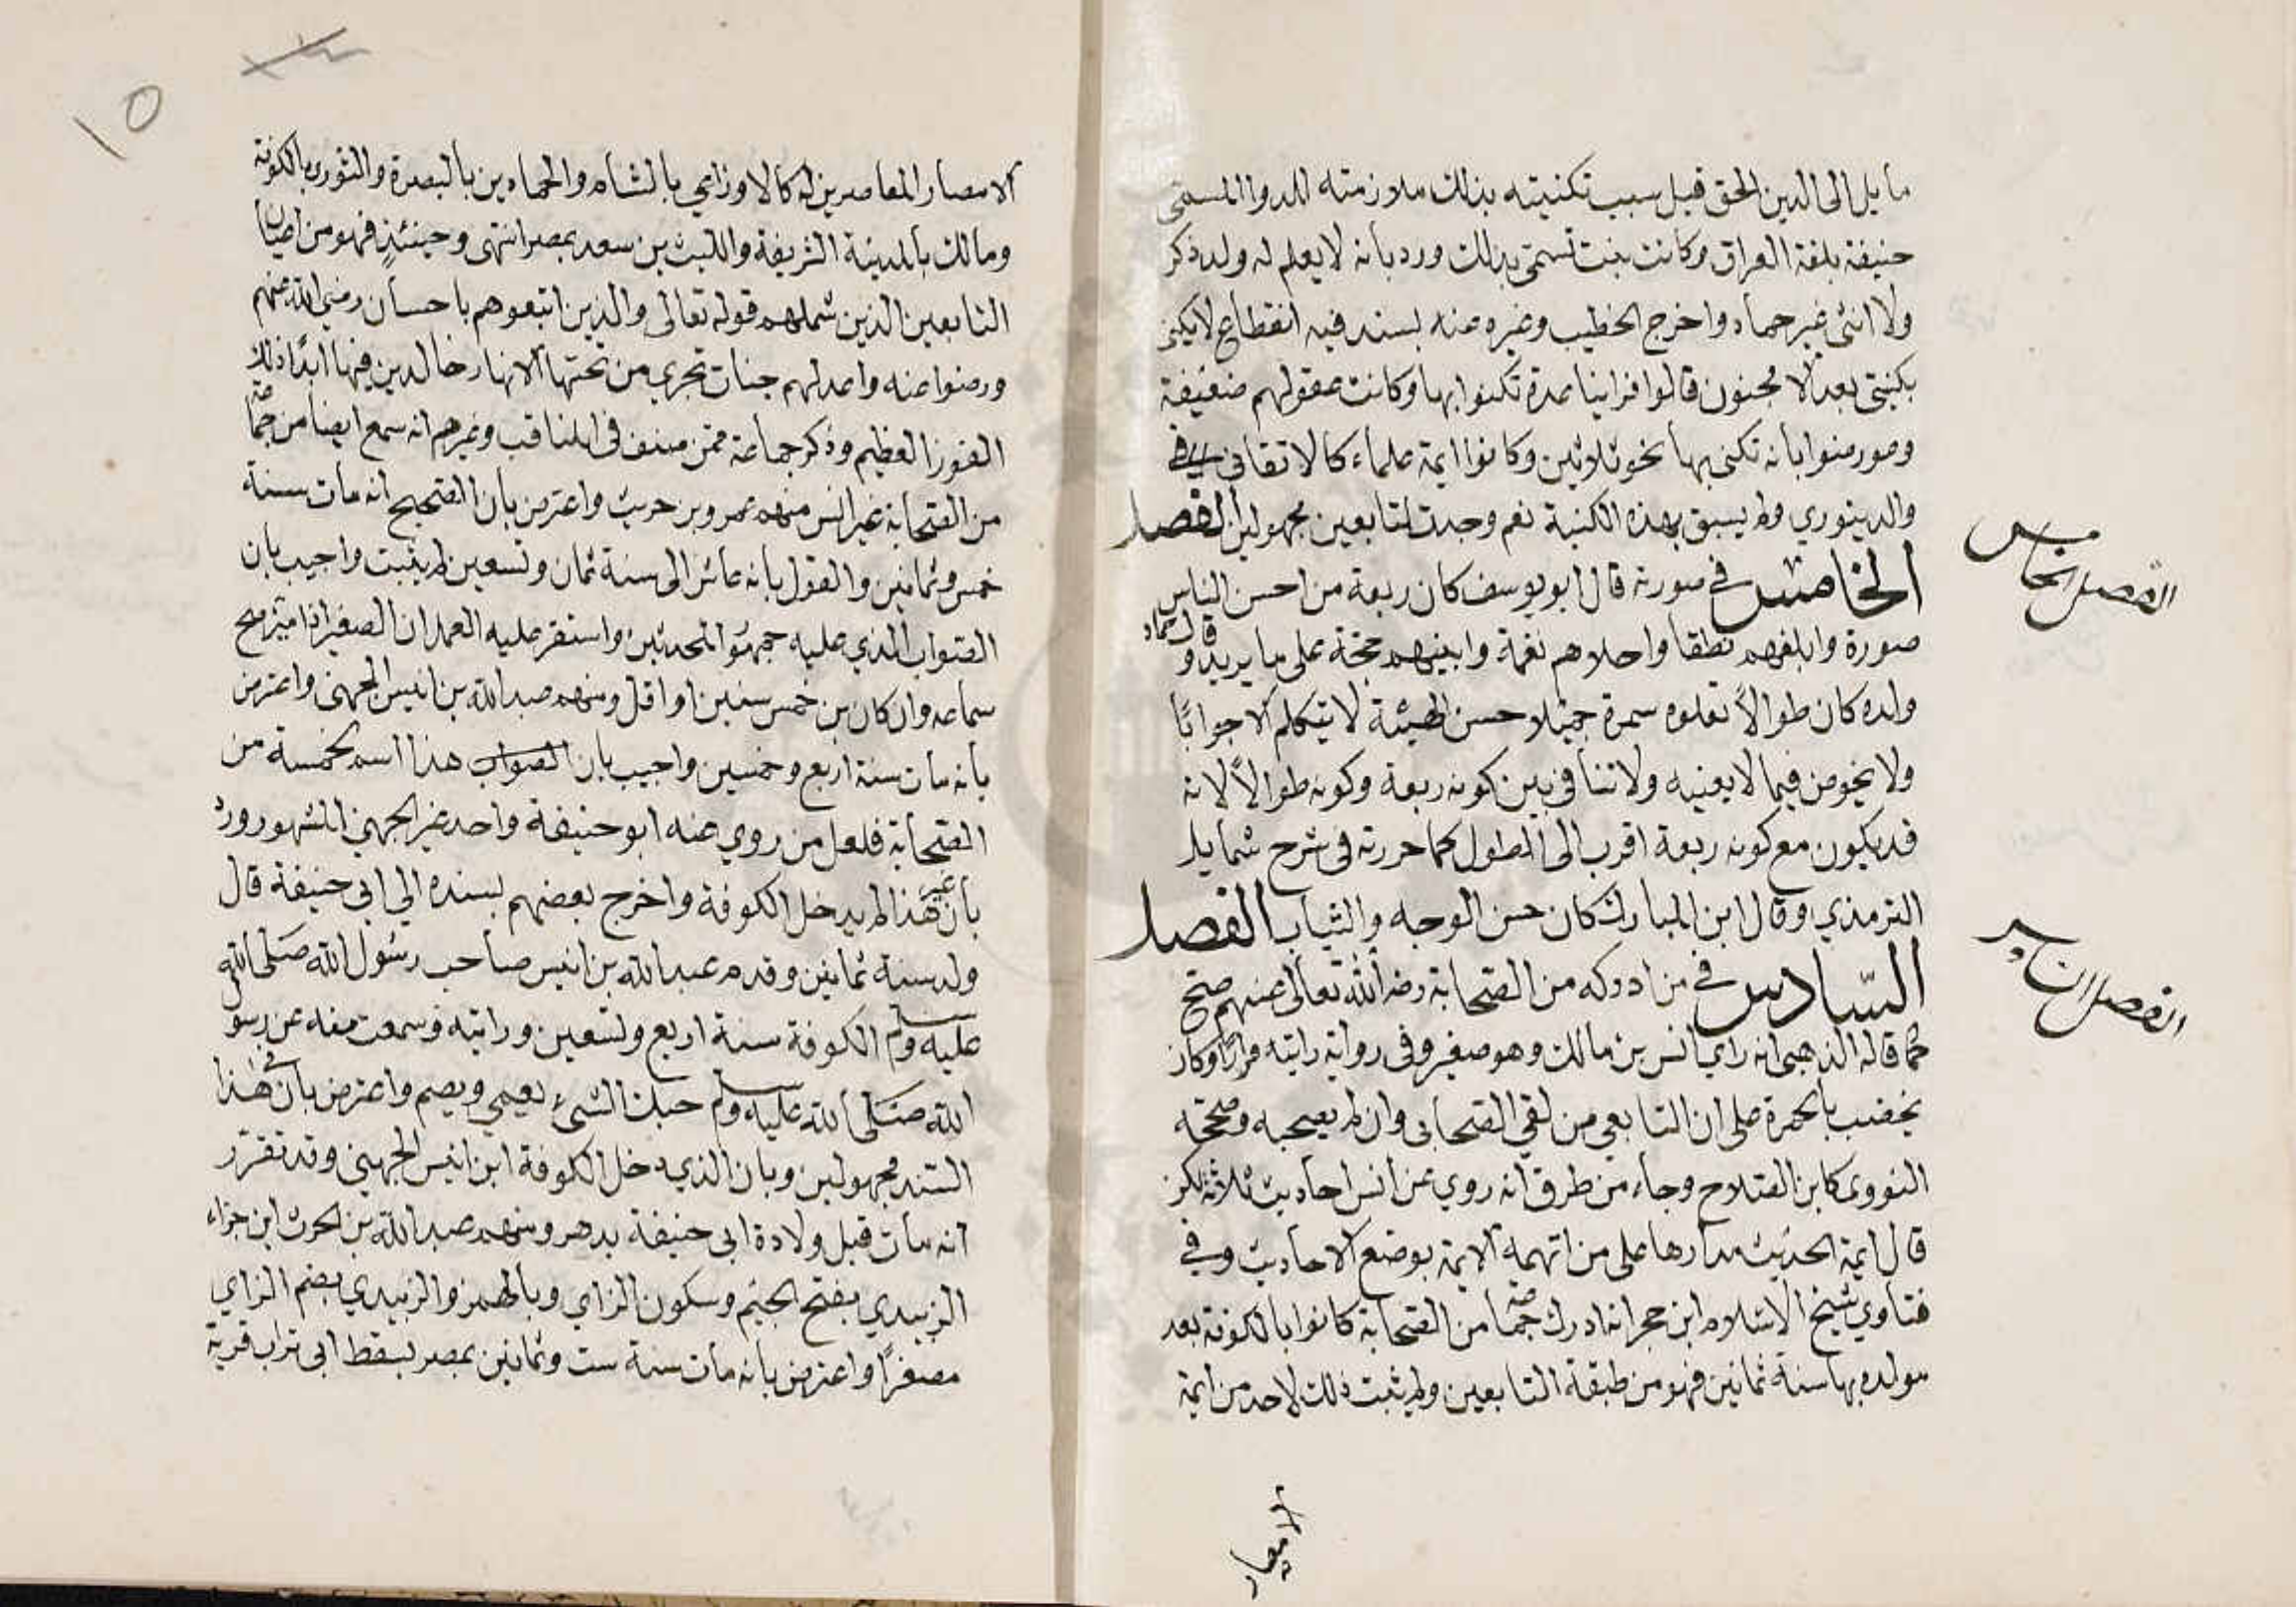 مايل الى الدين الحق قيل سبب تكنيته بذلك ملازمته للدواة المسمى
حنيفة بلغة العراق وكانت بنت تسمى بذلك ورد بانه لا يعلم له ولد ذكر
ولا انثى غير حماد واخرج الخطيب وغيره عنه بسند فيه انقطاع لا يكنى
بكنيتي بعد الا مجنون قالوا فراينا عدة تكنوا بها وكانت عقولهم ضعيفة
وعورضوا بانه تكنى بها نحو ثلاثين وكانوا ايمة علماء كالاتقاني
والدينوري ولم يسبق بهذه الكنية نعم وجدت لتابعين مجهولين الفصل
الخامس في صورته قال ابو يوسف كان ربعة من احسن الناس
الفصل الخامس
صورة وابلغهم نطقا واحلاهم نغمة وابينهم حجة على ما يريد وقال حماد
ولده كان طوالاً تعلوه سمرة جميلا حسن الهيئة لا يتكلم الا جوابًا
ولا يخوض فيما لا يعنيه ولا تنافي بين كونه ربعة وكونه طوالاً لانه
قد يكون مع كونه ربعة اقرب الى الطول كما حررته في شرح شمايل
الترمذي وقال ابن المبارك كان حسن الوجه والثياب الفصل
السّادس في من ادركه من الصحابة رضي الله تعالى عنهم صح
الفصل
كما قاله الذهبي انه راي انس بن مالك وهو صغير وفى رواية رايته مرارًا وكان
يخضب بالحمرة على ان التابعي من لقي الصحابي وان لم يصحبه وصححه
النووى كابن الصلاح وجاء من طرق انه روي عن انس احاديث ثلاثة لكن
قال ايمة الحديث مدارها على من اتهمه الايمة بوضع الاحاديث وفي
فتاوي شيخ الاسلام ابن حجر انه ادرك جماعة من الصحابة كانوا بالكوفة بعد
مولده بها سنة ثمانين فهو من طبقة التابعين ولم يثبت ذلك لاحد من ايمة
الامصار
١٥
الامصار المعاصرين له كالاوزاعي بالشام والحمادين بالبصرة والثوري بالكوفة
ومالك بالمدينة الشريفة والليث بن سعد بمصر انتهى وحينئذٍ فهو من اعيان
التابعين الذين شملهم قوله تعالى والذين اتبعوهم باحسان رضي الله عنهم
ورضوا عنه واعد لهم جنات تجري من تحتها الانهار خالدين فيها ابدًا ذلك
الفوز العظيم وذكر جماعة ممن صنف فى المناقب وغيرهم انه سمع ايضا من جماعة
من الصحابة غير انس منهم عمرو بن حريث واعترض بان الصحيح انه مات سنة
خمس وثمانين والقول بانه عاش الى سنة ثمان وتسعين لم يثبت واجيب بان
الصواب الذي عليه جمهور المحدثين واستقر عليه العمل ان الصغير اذا ميز صح
سماعه وان كان بن خمس سنين او اقل ومنهم عبد الله بن انيس الجهنى واعترض
بانه مات سنة اربع وخمسين واجيب بان الصواب هذا اسم لخمسة من
الصحابة فلعل من روي عنه ابو حنيفة واحد غير الجهني المشهور ورد
بأن غير هذا لم يدخل الكوفة واخرج بعضهم بسنده الي ابى حنيفة قال
ولد سنة ثمانين وقدم عبد الله بن انيس صاحب رسُول الله صَلّى الله
عليه وسلم الكوفة سنة اربع وتسعين ورايته وسمعت منه عن رسول
الله صَلّى الله عليه وسلم حبك الشىء يعمي ويصم واعترض بأن في هٰذا
السّند مجهولين وبان الذي دخل الكوفة ابن انيس الجهيني وقد تقرّر
انه مات قبل ولادة ابى حنيفة بدهر ومنهم عبد الله بن الحرث ابن جزاء
الزبيدي بفتح الجيم وسكون الزاي وبالهمز والزبيدي بضم الزاي
مصغرًا واعترض بانه مات سنة ست وثمانين بمصر بسقط ابى تراب قرية